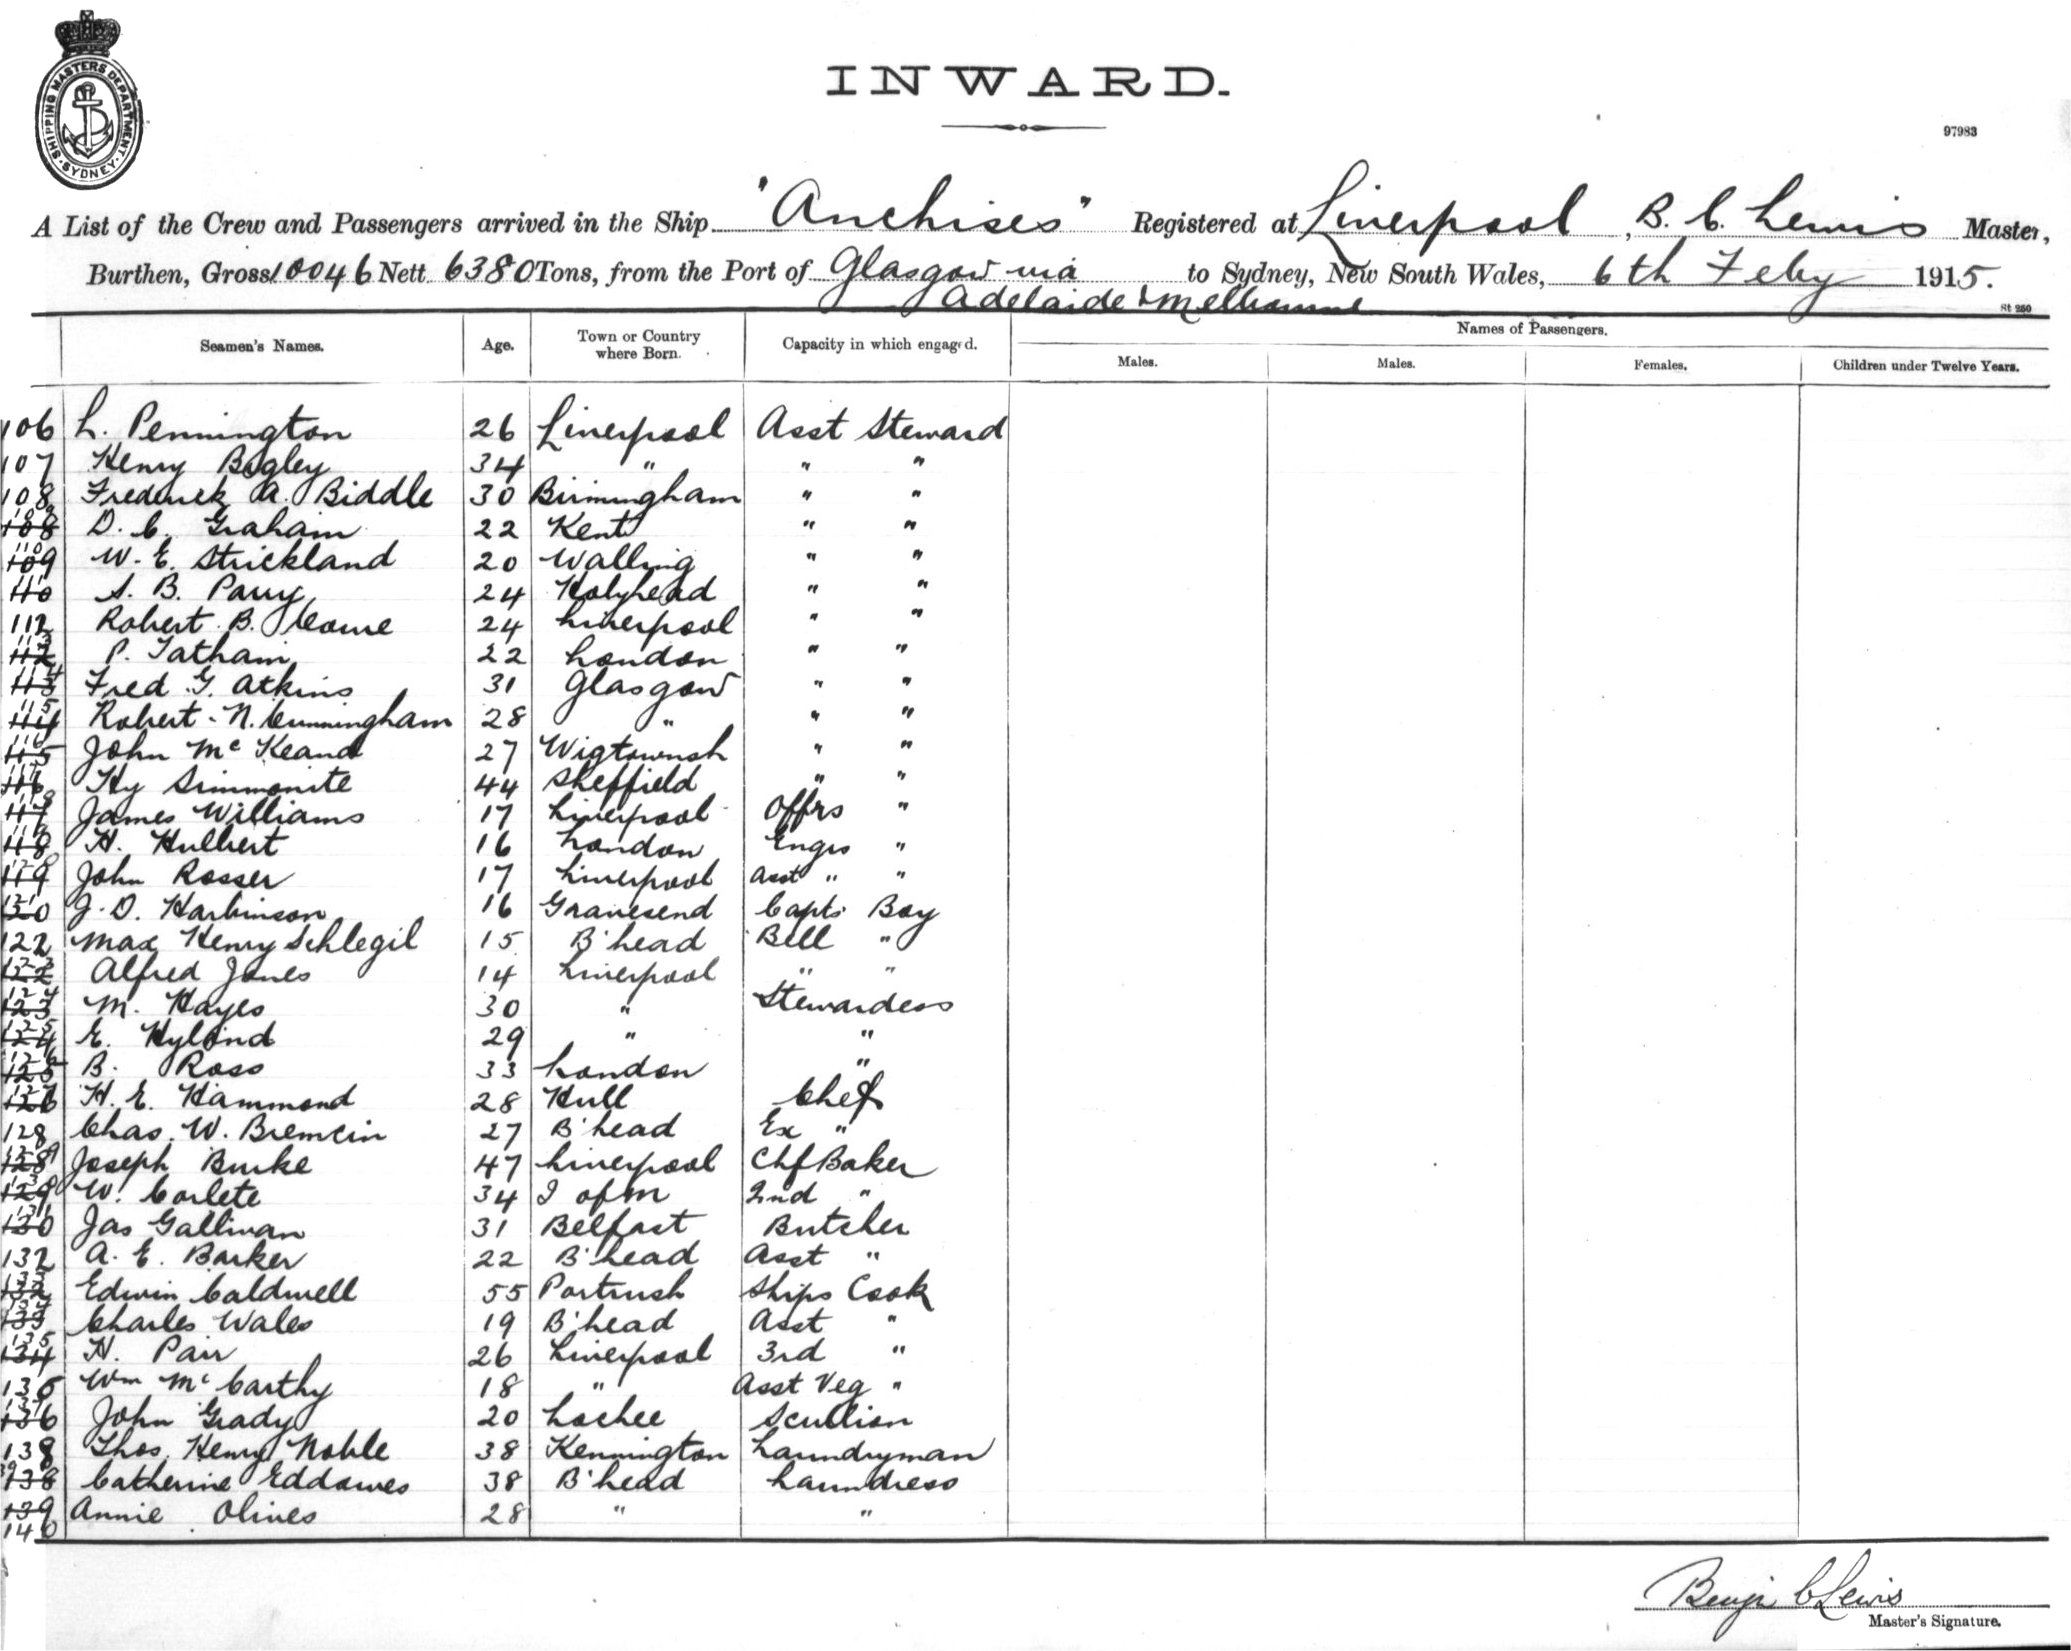 SHIPPING MASTERS DEPARTMENT · SYDNEY ·
INWARD.
97983
A List of the Crew and Passengers arrived in the Ship "Anchises" Registered at Liverpool, B. C. Lewis Master,
Burthen, Gross 10046 Nett 6380 Tons, from the Port of Glasgow via to Sydney, New South Wales, 6th Feby 1915.
Adelaide & Melbourne
St 250
Seamen's Names. Age. Town or Country where Born. Capacity in which engaged. Names of Passengers.
Males. Males. Females. Children under Twelve Years.
106 L. Pennington 26 Liverpool Asst Steward
107 Henry Bagley 34 " " "
108 Frederick A. Biddle 30 Birmingham " "
108 109 D. C. Graham 22 Kent " "
109 110 W. E. Strickland 20 Walling " "
110 S. B. Parry 24 Holyhead " "
112 Robert B. 24 Liverpool " "
112 113 P. Tatham 22 London " "
113 114 Fred G. Atkins 31 Glasgow " "
114 115 Robert N. Cunningham 28 " " "
115 116 John Mc Keand 27 Wigtownsh " "
116 117 Hy Simmonite 44 Sheffield " "
117 118 James Williams 17 Liverpool Offrs "
118 119 H. Hulbert 16 London Engrs "
119 120 John Rosser 17 Liverpool Asst " "
120 121 J. D. Harbinson 16 Gravesend Capts Boy
122 Max Henry Schlegil 15 B'head Bell "
122 123 Alfred Jones 14 Liverpool " "
123 124 M. Hayes 30 " Stewardess
124 125 E. Hyland 29 " "
125 126 B. Ross 33 London "
126 127 H. E. Hammond 28 Hull Chef
128 Chas. W. Bremein 27 B'head Ex "
128 129 Joseph Burke 47 Liverpool Chf Baker
129 130 W. Corlete 34 I of M 2nd "
130 131 Jas Gallivan 31 Belfast Butcher
132 A. E. Barker 22 B'head Asst "
132 133 Edwin Caldwell 55 Portrush Ships Cook
133 134 Charles Wales 19 B'head Asst "
134 135 H. Parr 26 Liverpool 3rd "
136 Wm Mc Carthy 18 " Asst Veg "
136 137 John Grady 20 Lochee Scullion
138 Thos. Henry Noble 38 Kennington Laundryman
138 139 Catherine Eddowes 38 B'head Laundress
139 140 Annie Olives 28 " "
Benjn C Lewis
Master's Signature.